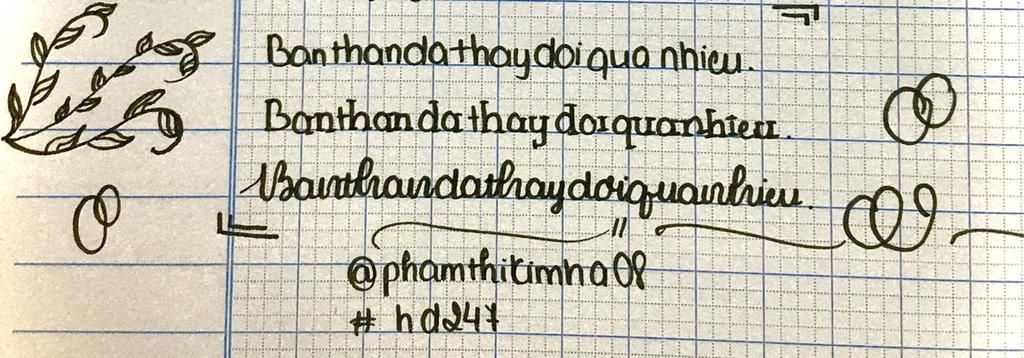 Banthandathaydoiqua nhieu.
Banthandathaydoiquanhieu.
Banthandathaydoiquanhieu.
@phamthikimha08
# hd247